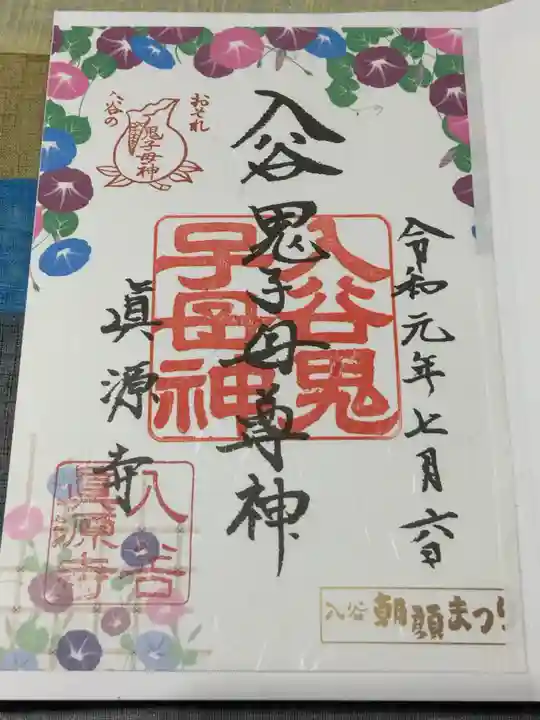 令和元年七月六日
入谷鬼子母尊神
眞源寺
入谷鬼
子母神
おそれ
入谷の
鬼子母神
入谷
眞源寺
入谷 朝顔まつり